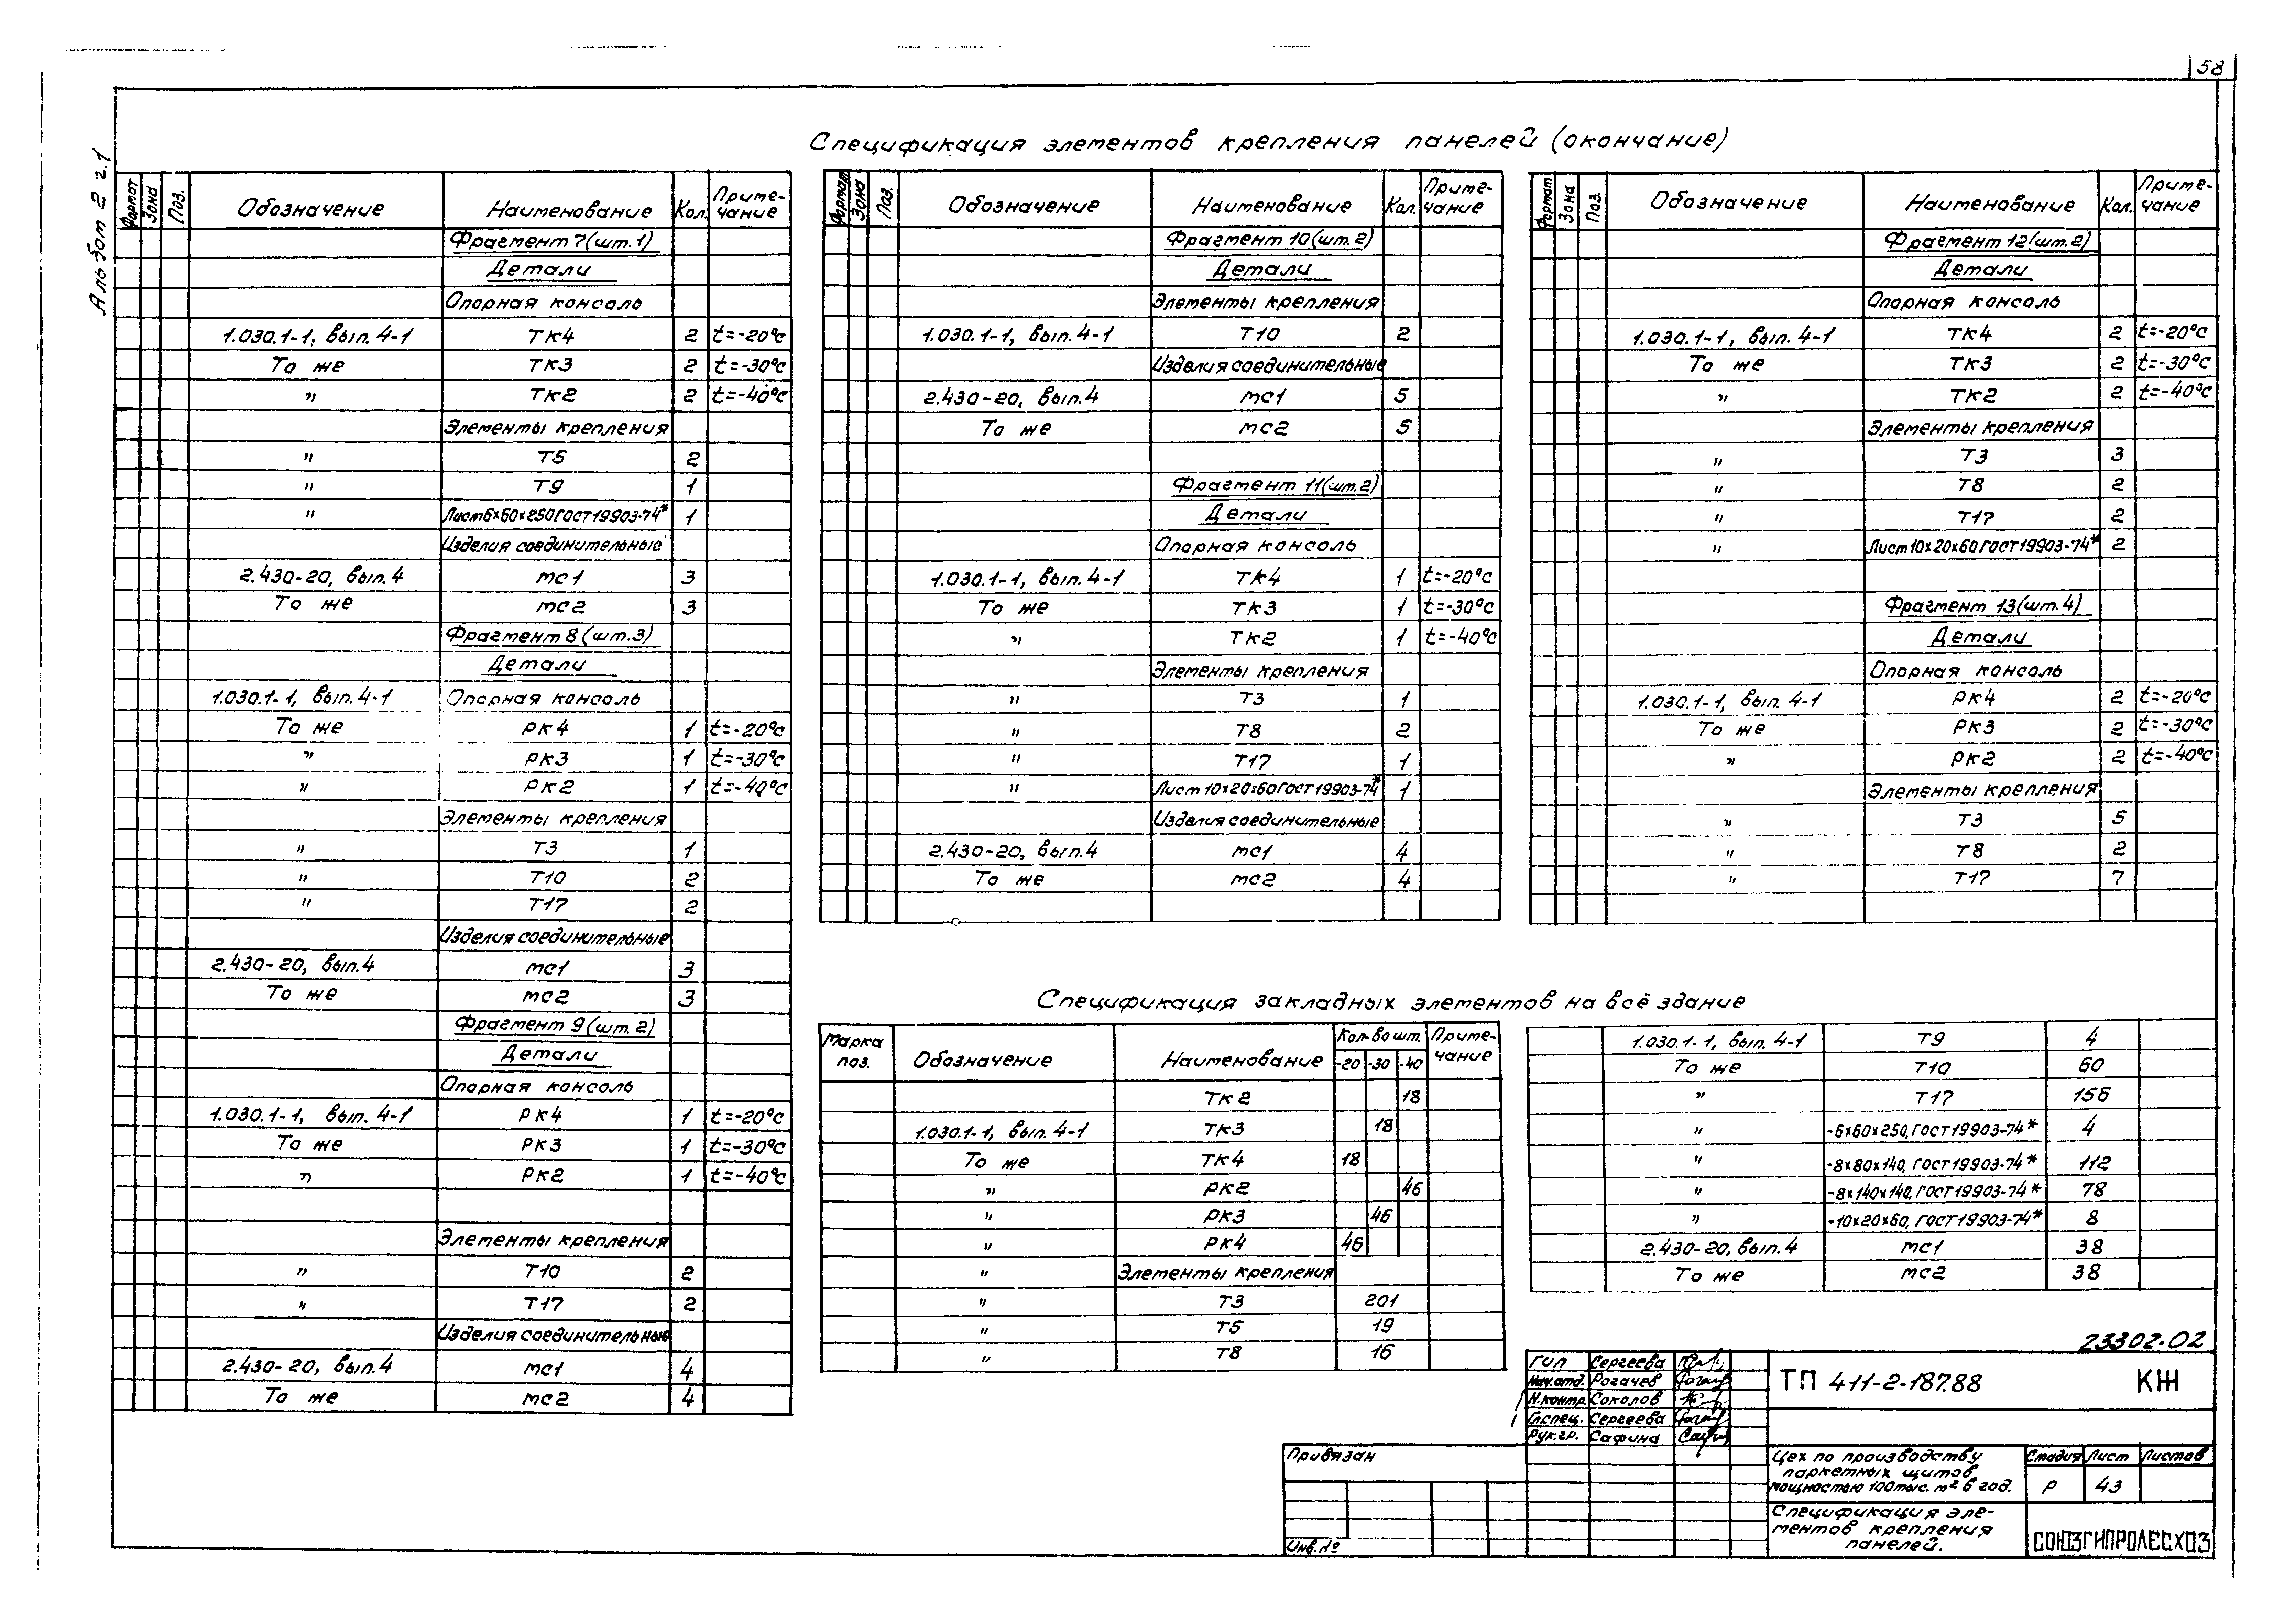 58
Альбом 2 г.1
Спецификация элементов крепления панелей (окончание)
Формат Зона Поз. Обозначение Наименование Кол. Примечание
Фрагмент 7 (шт.1)
Детали
Опорная консоль
1.030.1-1, вып. 4-1 ТК4 2 t=-20°С
То же ТК3 2 t=-30°С
" ТК2 2 t=-40°С
Элементы крепления
" Т5 2
" Т9 1
" Лист 6×60×250 ГОСТ 19903-74* 1
Изделия соединительные
2.430-20, вып. 4 мс1 3
То же мс2 3
Фрагмент 8 (шт.3)
Детали
1.030.1-1, вып. 4-1 Опорная консоль
То же РК4 1 t=-20°С
" РК3 1 t=-30°С
" РК2 1 t=-40°С
Элементы крепления
" Т3 1
" Т10 2
" Т17 2
Изделия соединительные
2.430-20, вып. 4 мс1 3
То же мс2 3
Фрагмент 9 (шт.2)
Детали
Опорная консоль
1.030.1-1, вып. 4-1 РК4 1 t=-20°С
То же РК3 1 t=-30°С
" РК2 1 t=-40°С
Элементы крепления
" Т10 2
" Т17 2
Изделия соединительные
2.430-20, вып. 4 мс1 4
То же мс2 4
Формат Зона Поз. Обозначение Наименование Кол. Примечание
Фрагмент 10 (шт.2)
Детали
Элементы крепления
1.030.1-1, вып. 4-1 Т10 2
Изделия соединительные
2.430-20, вып. 4 мс1 5
То же мс2 5
Фрагмент 11 (шт.2)
Детали
Опорная консоль
1.030.1-1, вып. 4-1 ТК4 1 t=-20°С
То же ТК3 1 t=-30°С
" ТК2 1 t=-40°С
Элементы крепления
" Т3 1
" Т8 2
" Т17 1
" Лист 10×20×60 ГОСТ 19903-74* 1
Изделия соединительные
2.430-20, вып. 4 мс1 4
То же мс2 4
Формат Зона Поз. Обозначение Наименование Кол. Примечание
Фрагмент 12 (шт.2)
Детали
Опорная консоль
1.030.1-1, вып. 4-1 ТК4 2 t=-20°С
То же ТК3 2 t=-30°С
" ТК2 2 t=-40°С
Элементы крепления
" Т3 3
" Т8 2
" Т17 2
" Лист 10×20×60 ГОСТ 19903-74* 2
Фрагмент 13 (шт.4)
Детали
Опорная консоль
1.030.1-1, вып. 4-1 РК4 2 t=-20°С
То же РК3 2 t=-30°С
" РК2 2 t=-40°С
Элементы крепления
" Т3 5
" Т8 2
" Т17 7
Спецификация закладных элементов на всё здание
Марка поз. Обозначение Наименование Кол-во шт. Примечание
-20 -30 -40
ТК2 18
1.030.1-1, вып. 4-1 ТК3 18
То же ТК4 18
" РК2 46
" РК3 46
" РК4 46
" Элементы крепления
" Т3 201
" Т5 19
" Т8 16
1.030.1-1, вып. 4-1 Т9 4
То же Т10 60
" Т17 156
" -6×60×250, ГОСТ 19903-74* 4
" -8×80×140, ГОСТ 19903-74* 112
" -8×140×140, ГОСТ 19903-74* 78
" -10×20×60, ГОСТ 19903-74* 8
2.430-20, вып. 4 мс1 38
То же мс2 38
23302-02
ГИП Сергеева
Нач.отд. Рогачев
Н.контр. Соколов
Гл.спец. Сергеева
Рук.гр. Сафина
ТП 411-2-187.88 КЖ
Привязан
Инв.№
Цех по производству
паркетных щитов
мощностью 100 тыс. м² в год.
Стадия Лист Листов
Р 43
Спецификация эле-
ментов крепления
панелей.
СОЮЗГИПРОЛЕСХОЗ